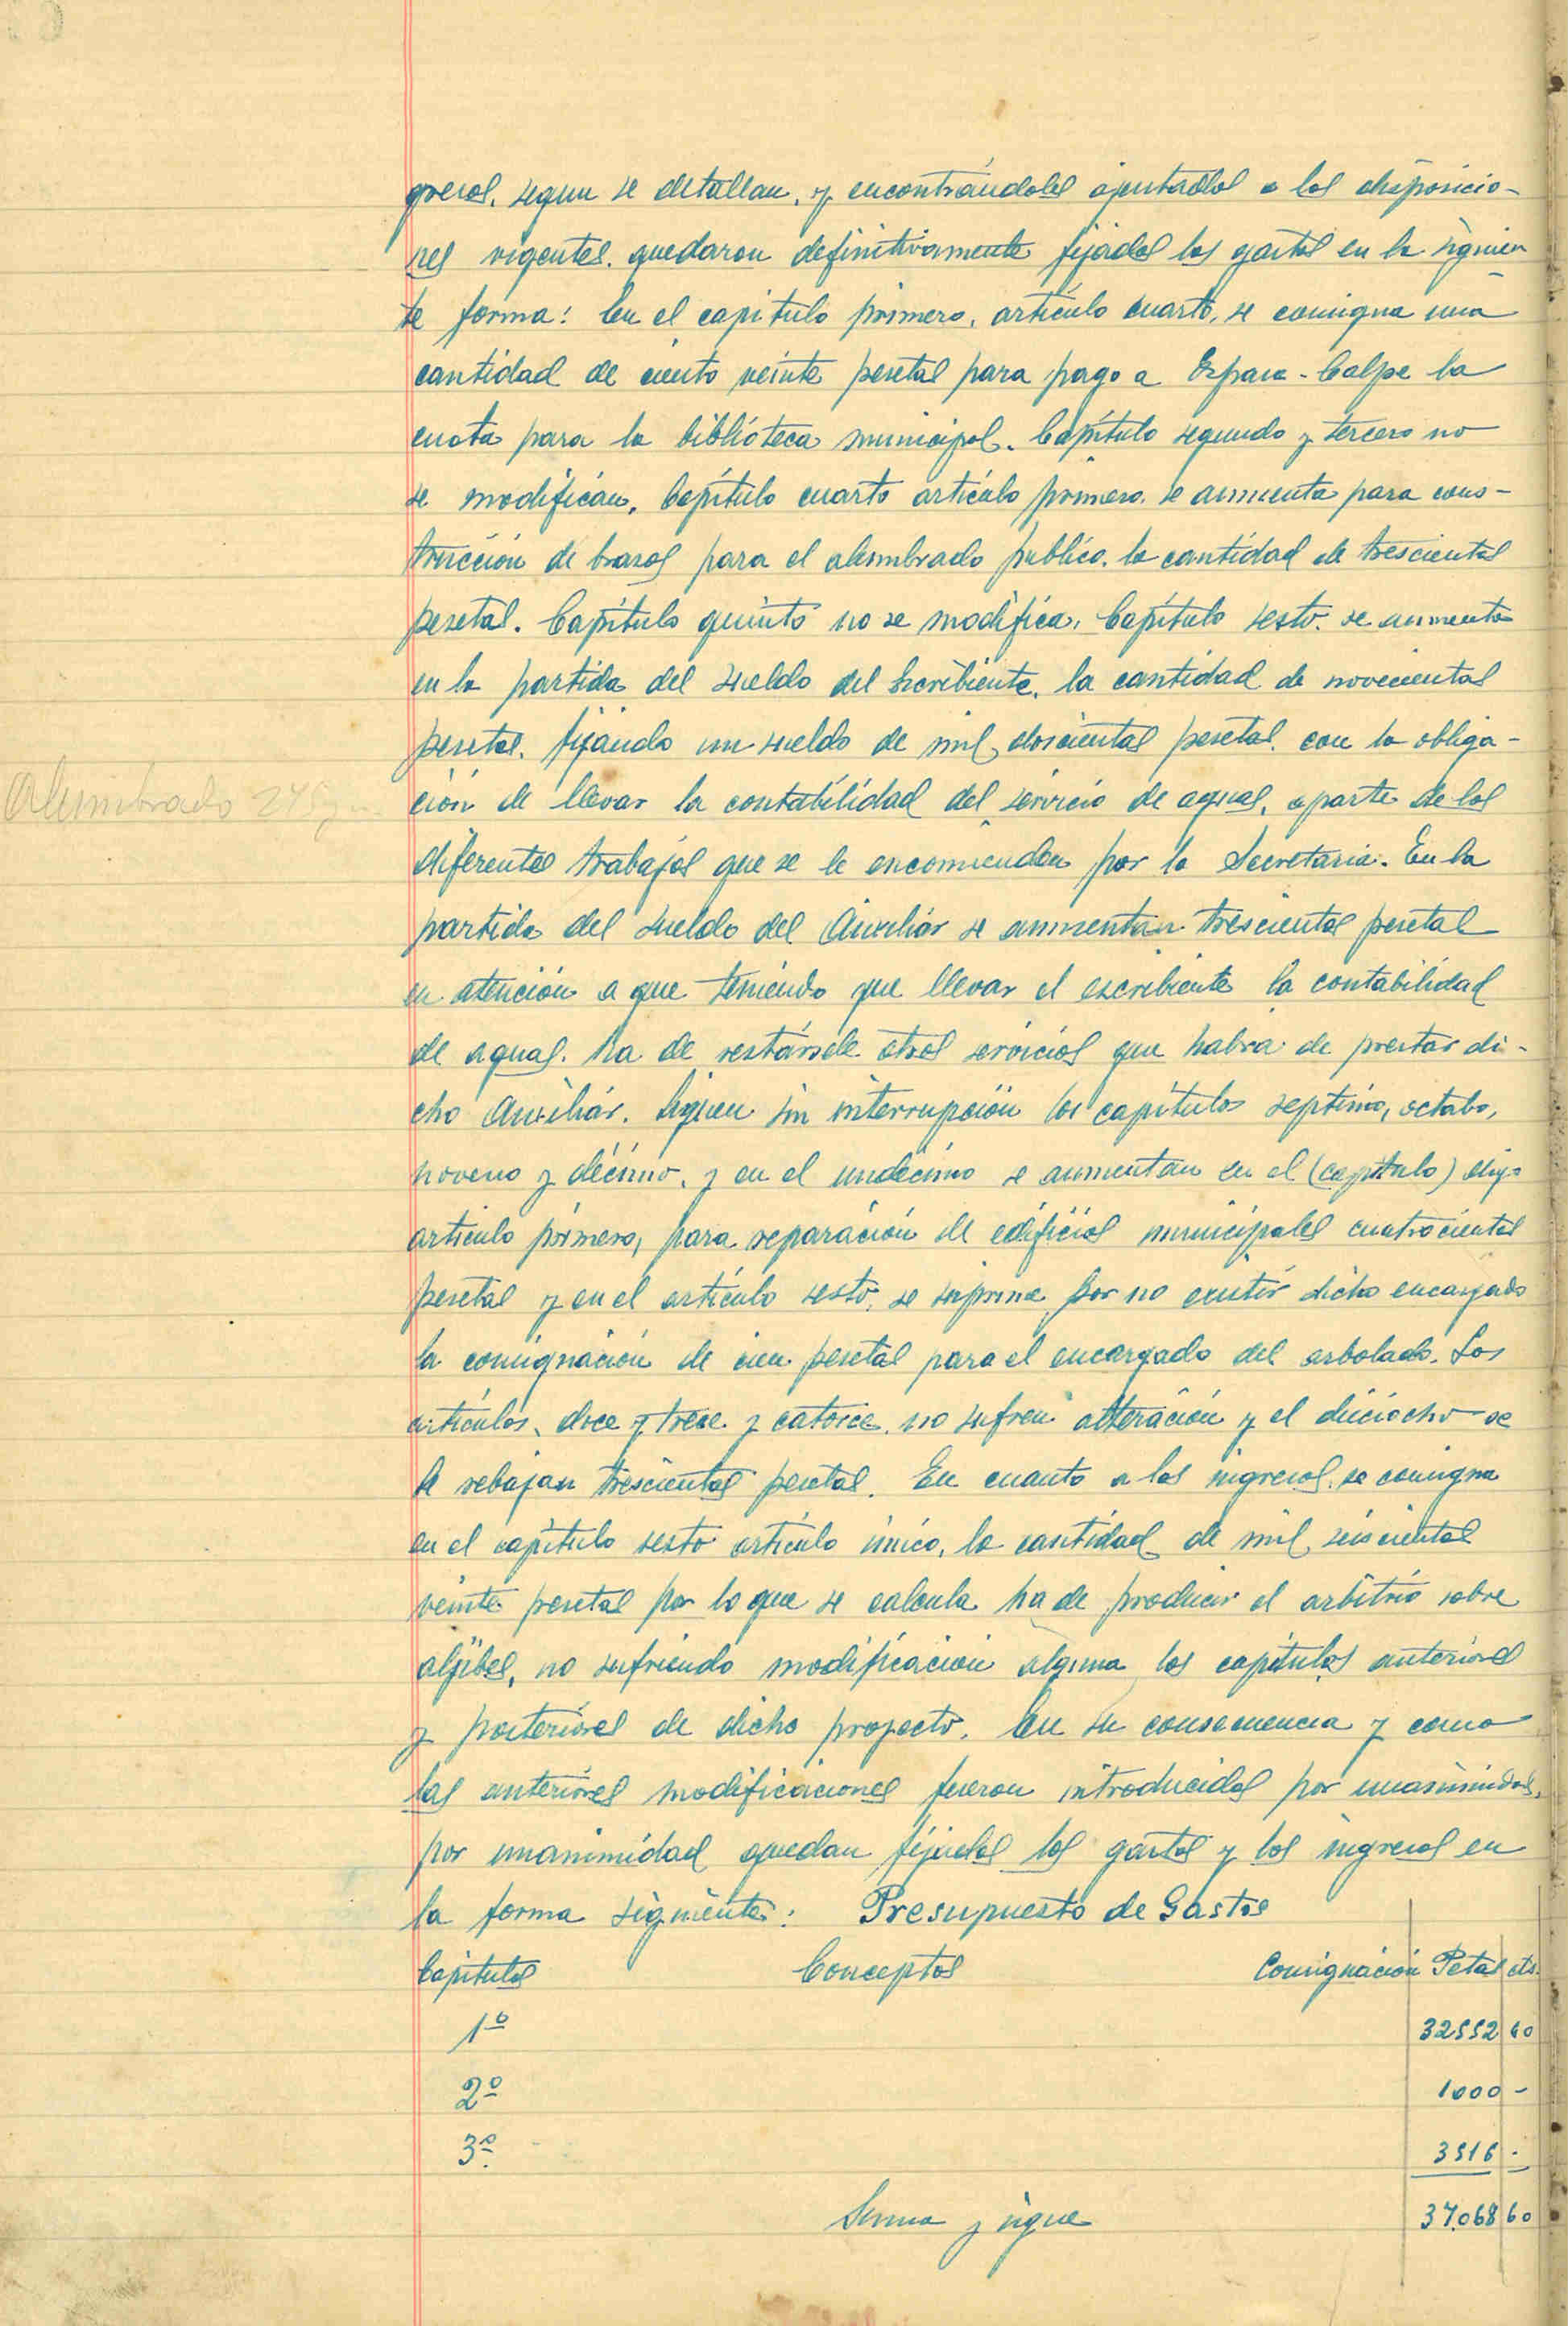 gresos, segun se detallan, y encontrándolos ajustados a las disposicio-
nes vigentes, quedaron definitivamente fijados los gastos en la siguien
te forma: En el capitulo primero, artículo cuarto, se consigna una
cantidad de ciento veinte pesetas para pago a Espasa-Calpe la
cuota para la biblioteca municipal. Capítulo segundo y tercero no
se modifican. Capítulo cuarto artículo primero, se aumenta para cons-
trucción de brazos para el alumbrado publico, la cantidad de trescientas
pesetas. Capítulo quinto no se modifica. Capítulo sesto, se aumenta
en la partida del sueldo del Escribiente, la cantidad de novecientas
pesetas, fijando un sueldo de mil doscientas pesetas, con la obliga-
Alumbrado
ción de llevar la contabilidad del servicio de aguas, aparte de los
diferentes trabajos que se le encomienden por la Secretaria. En la
partida del sueldo del Auxiliar se aumentan trescientas pesetas
en atención a que teniendo que llevar el escribiente la contabilidad
de aguas, ha de restársele otros servicios que habra de prestar di-
cho Auxiliar. Siguen sin interrupción los capítulos septimo, octabo,
noveno y décimo, y en el undécimo se aumentan en el (capítulo) digo
artículo primero, para reparación de edificios municipales cuatrocientas
pesetas y en el artículo sesto, se suprime por no existir dicho encargado
la consignación de cien pesetas para el encargado del arbolado. Los
artículos, doce y trece y catorce, no sufren alteración y el dieciocho se
le rebajan trescientas pesetas. En cuanto a los ingresos, se consigna
en el capítulo sesto artículo único, la cantidad de mil seiscientas
veinte pesetas por lo que se calcula ha de producir el arbitrio sobre
aljibes, no sufriendo modificación alguna los capítulos anteriores
y posteriores de dicho proyecto. En su consecuencia y como
las anteriores modificaciones fueron introducidas por unanimidad,
por unanimidad quedan fijados los gastos y los ingresos en
la forma siguiente: Presupuesto de Gastos
Capítulos Conceptos Consignación Petas cts.
1º 32552 60
2º 1000 -
3º 3516 -
Suma y sigue 37.068 60